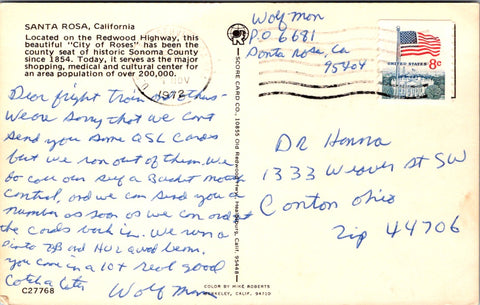 SANTA ROSA, California
Located on the Redwood Highway, this
beautiful "City of Roses" has been the
county seat of historic Sonoma County
since 1854. Today, it serves as the major
shopping, medical and cultural center for
an area population of over 200,000.
NOV
1972
Dear fright train
We are sorry that we cant
send you some QSL Cards
but we ron out of them. we
do core our self a Bucket mouth
control, and we can send you a
number as soon as we can order
the cords back in. We run a
and quad beam.
you come in a 10+ real good
Cotcha later
Wolf man
C27768
SCORE CARD CO., 10855 Old Redwood Hwy., Healdsburg, Calif. 95448
COLOR BY MIKE ROBERTS
BERKELEY, CALIF. 94710
Wolf mon
P.O 6681
Santa Rosa, Ca
95404
UNITED STATES 8c
DR Hanna
1333 Weaver st SW
Conton Ohio
Zip 44706